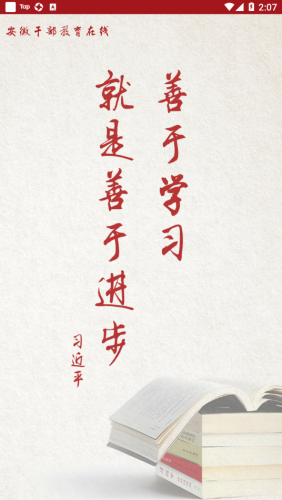 Top
2:07
安徽干部教育在线
善于学习
就是善于进步
习近平